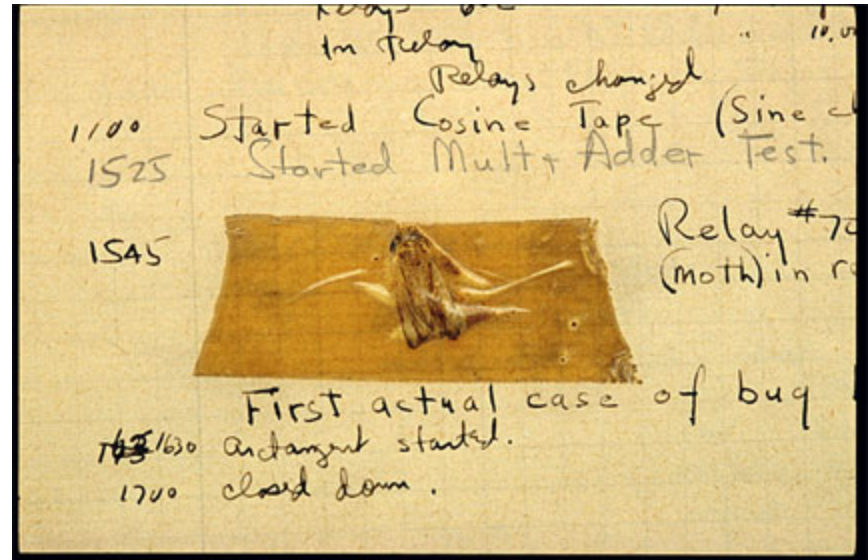 Relays
in relay
10.00
Relays changed
1100 Started Cosine Tape (Sine
1525 Started Mult + Adder Test.
1545 Relay #70
(moth) in
First actual case of bug
1630 arctangent started.
1700 closed down.